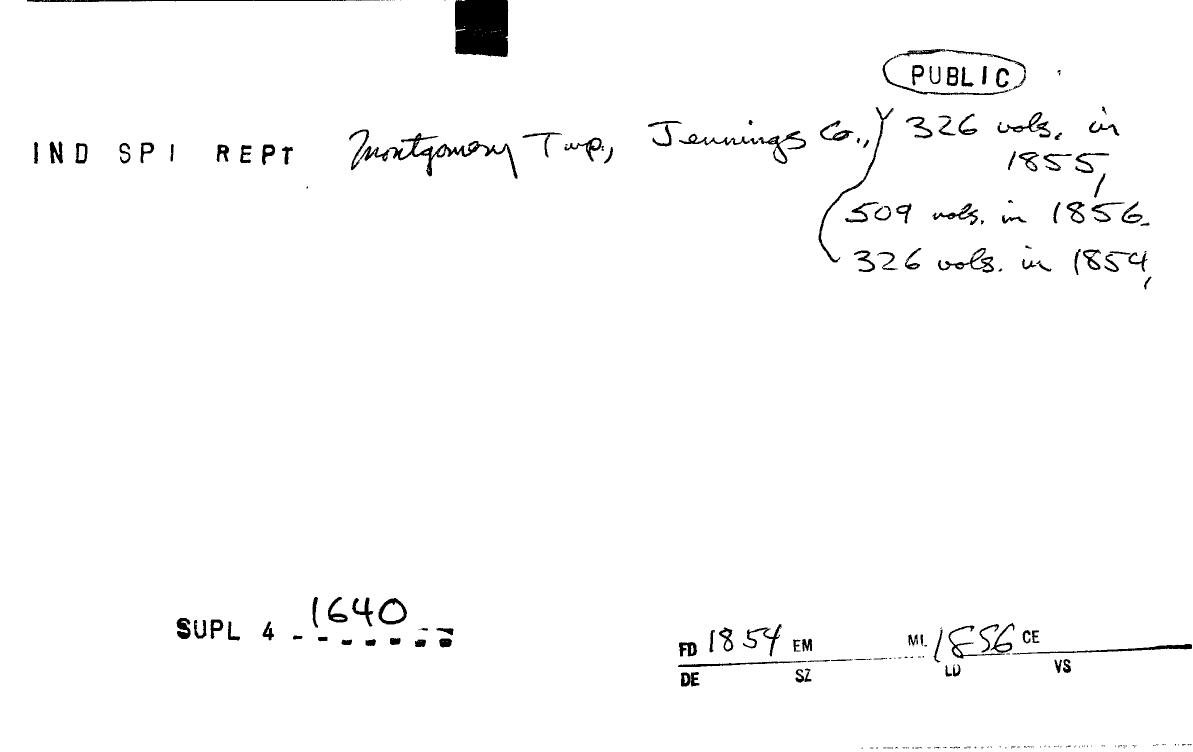 PUBLIC
IND SPI REPT Montgomery Twp., Jennings Co., 326 vols. in
1855,
509 vols. in 1856.
326 vols. in 1854,
SUPL 4 1640
FD 1854 EM MI 1856 CE
DE SZ LD VS